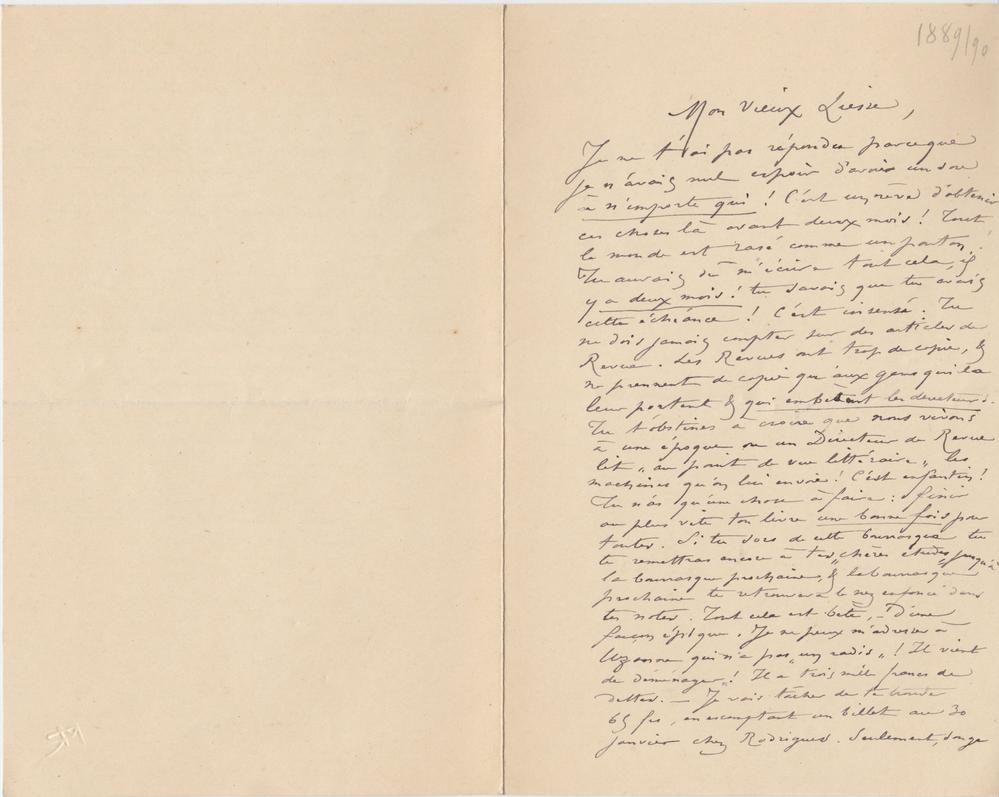 1889/90
Mon vieux Liesse,
Je ne t'ai pas répondu parceque
je n'avais nul espoir d'avoir un sou
à n'importe qui ! C'est un rêve d'obtenir
ces choses là avant deux mois ! Tout
le monde est rasé comme un ponton.
Tu aurais dû m'écrire tout cela, il
y a deux mois ! tu savais que tu avais
cette échéance ! C'est insensé. Tu
ne dois jamais compter sur des articles de
Revue. Les Revues ont trop de copie, &
ne prennent de copie qu'aux gens qui la
leur portent & qui embêtent les directeurs.
Tu t'obstines à croire que nous vivons
à une époque ou un Directeur de Revue
lit „ au point de vue littéraire „ les
machines qu'on lui envoie ! C'est enfantin !
Tu n'as qu'une chose à faire : finir
au plus vite ton livre une bonne fois pour
toutes. Si tu sors de cette bourrasque tu
te remettras encore à tes „ chères études „ jusqu'à
la bourrasque prochaine, & la bourrasque
prochaine te retrouvera le nez enfoncé dans
tes notes. Tout cela est bête, - D'une
façon épique. Je ne peux m'adresser à
Uzanne qui n'a pas „ un radis „ ! Il vient
de déménager ! Il a trois mille francs de
dettes. — Je vais tâcher de te
65 frs, en escomptant un billet au 30
janvier chez Rodrigues. Seulement, songe